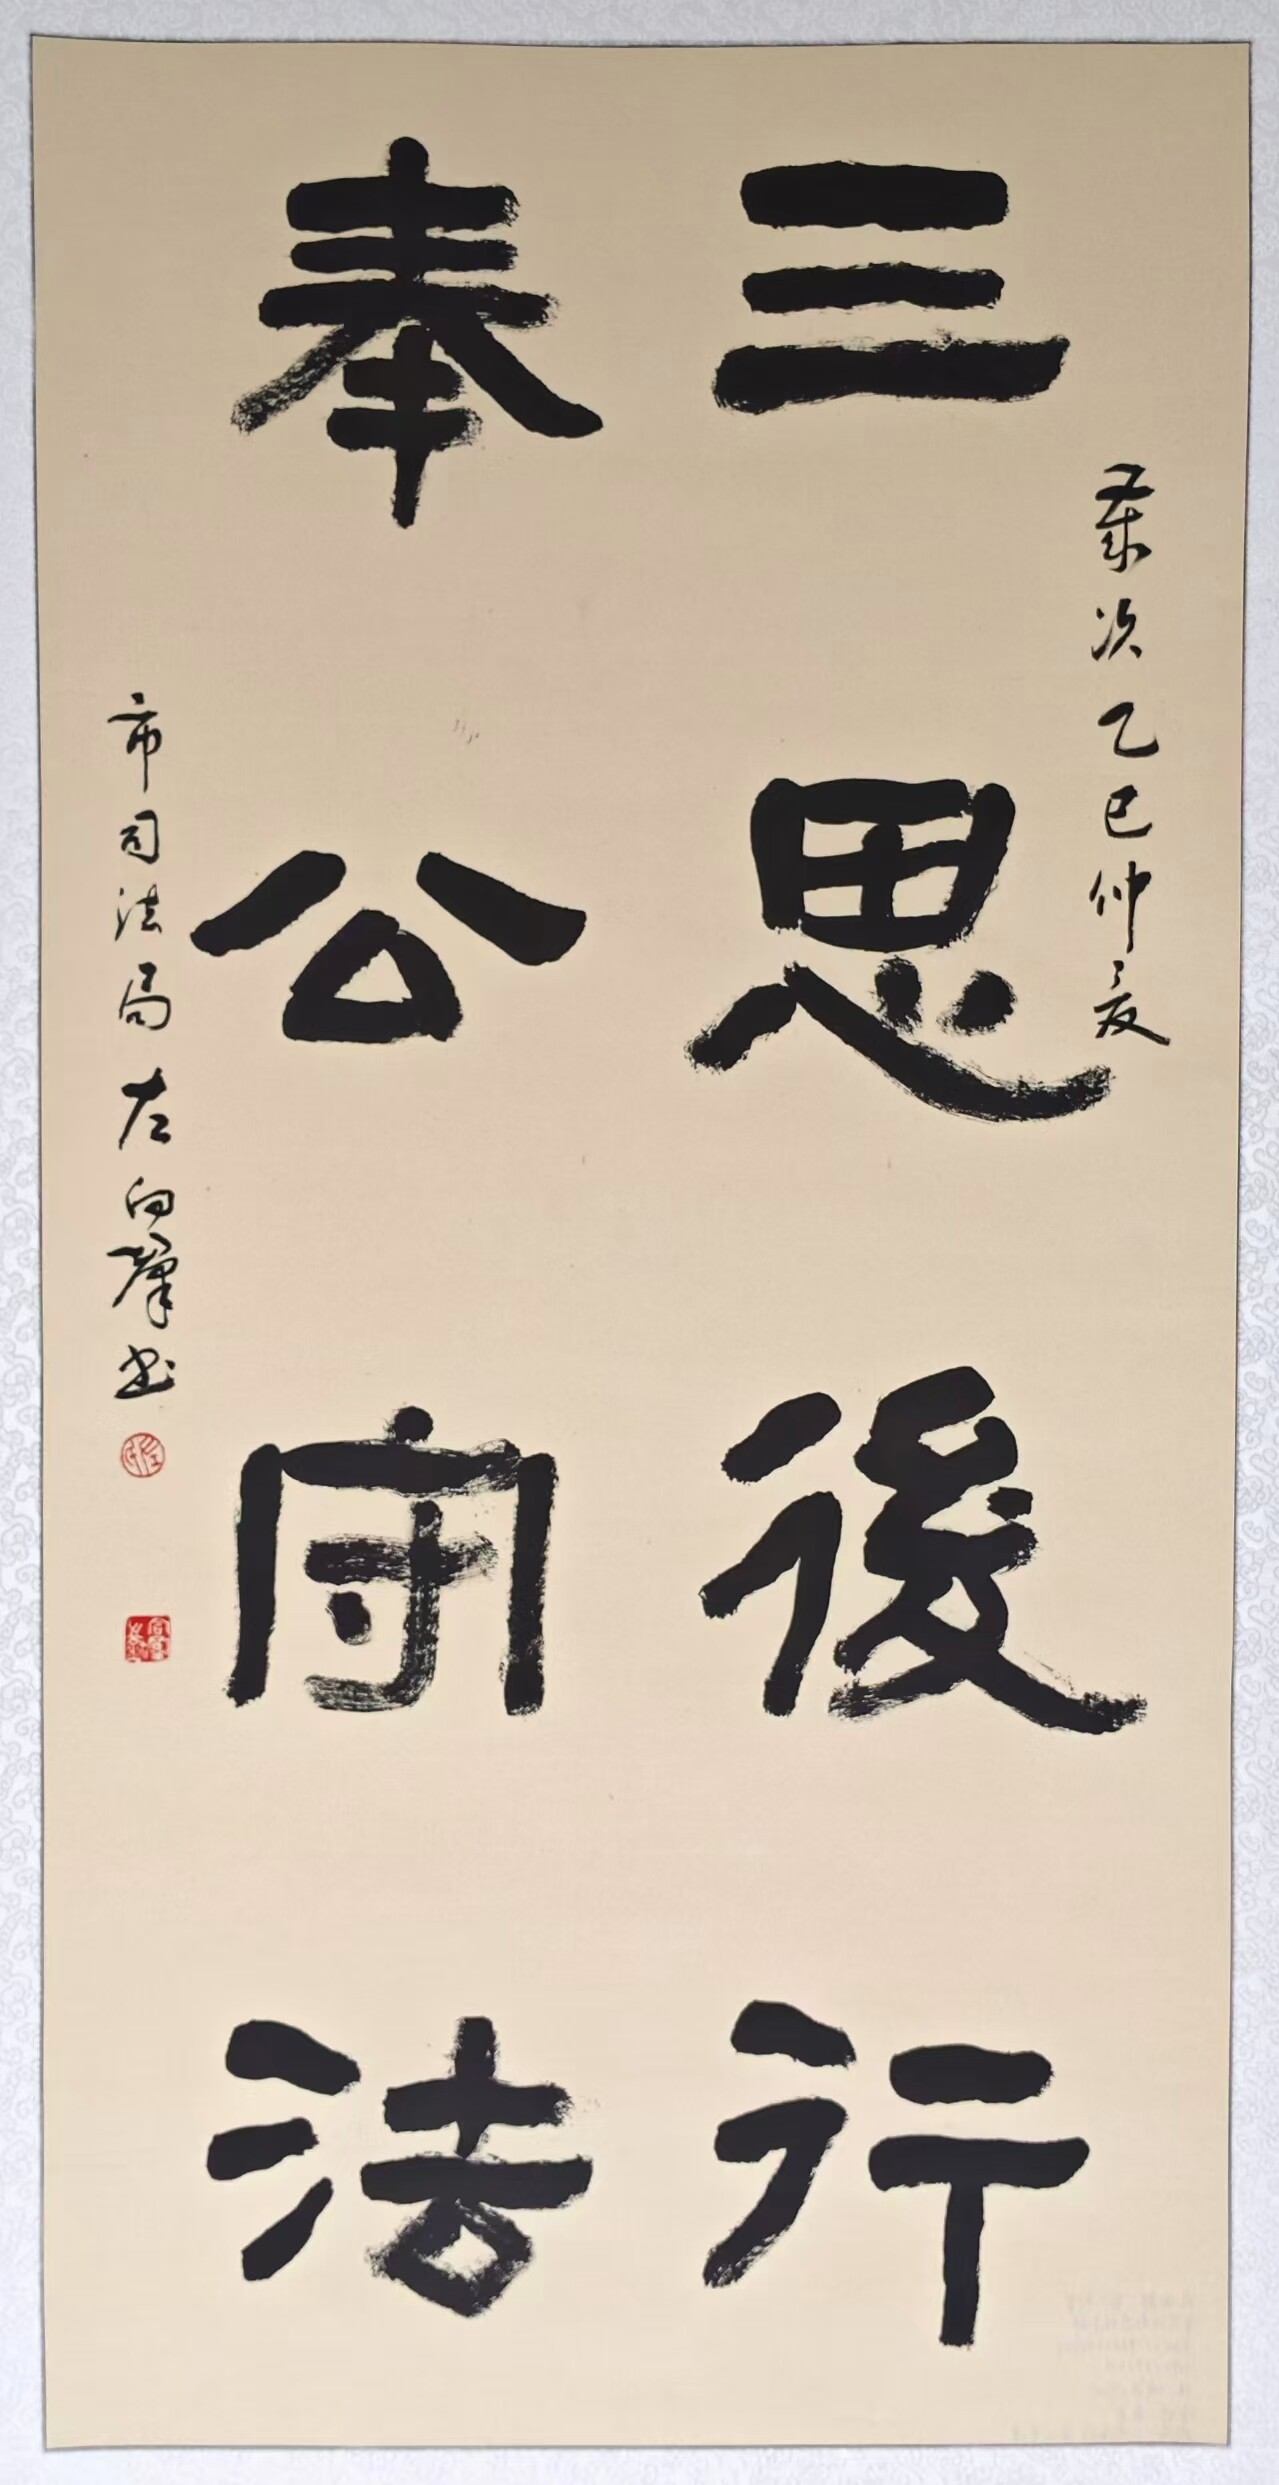 三思後行
奉公守法
歲次乙巳仲夏
市司法局左向肇书